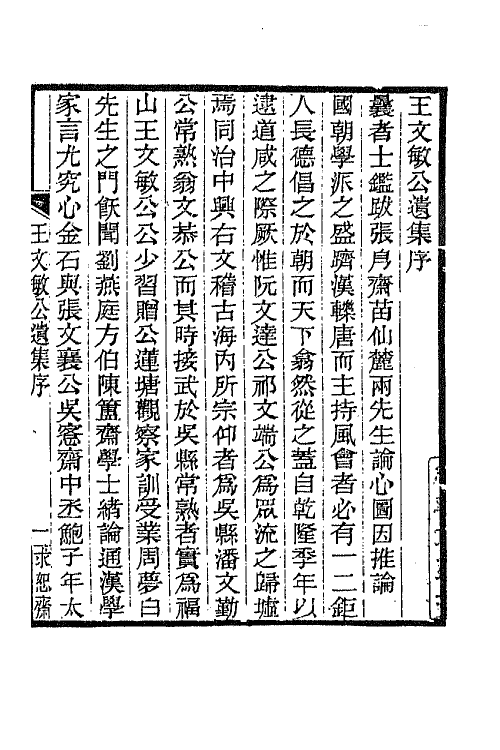 王文敏公遺集序
曩者士鑑跋張㐆齋苗仙麓兩先生論心圖因推論
國朝學派之盛躋漢轢唐而主持風會者必有一二鉅
人長德倡之於朝而天下翕然從之蓋自乾隆季年以
逮道咸之際厥惟阮文達公祁文端公為眾流之歸墟
焉同治中興右文稽古海內所宗仰者為吳縣潘文勤
公常熟翁文恭公而其時接武於吳縣常熟者實為福
山王文敏公公少習贈公蓮塘觀察家訓受業周夢白
先生之門飫聞劉燕庭方伯陳簠齋學士緒論通漢學
家言尤究心金石與張文襄公吳愙齋中丞鮑子年太
王文敏公遺集序
一
求恕齋